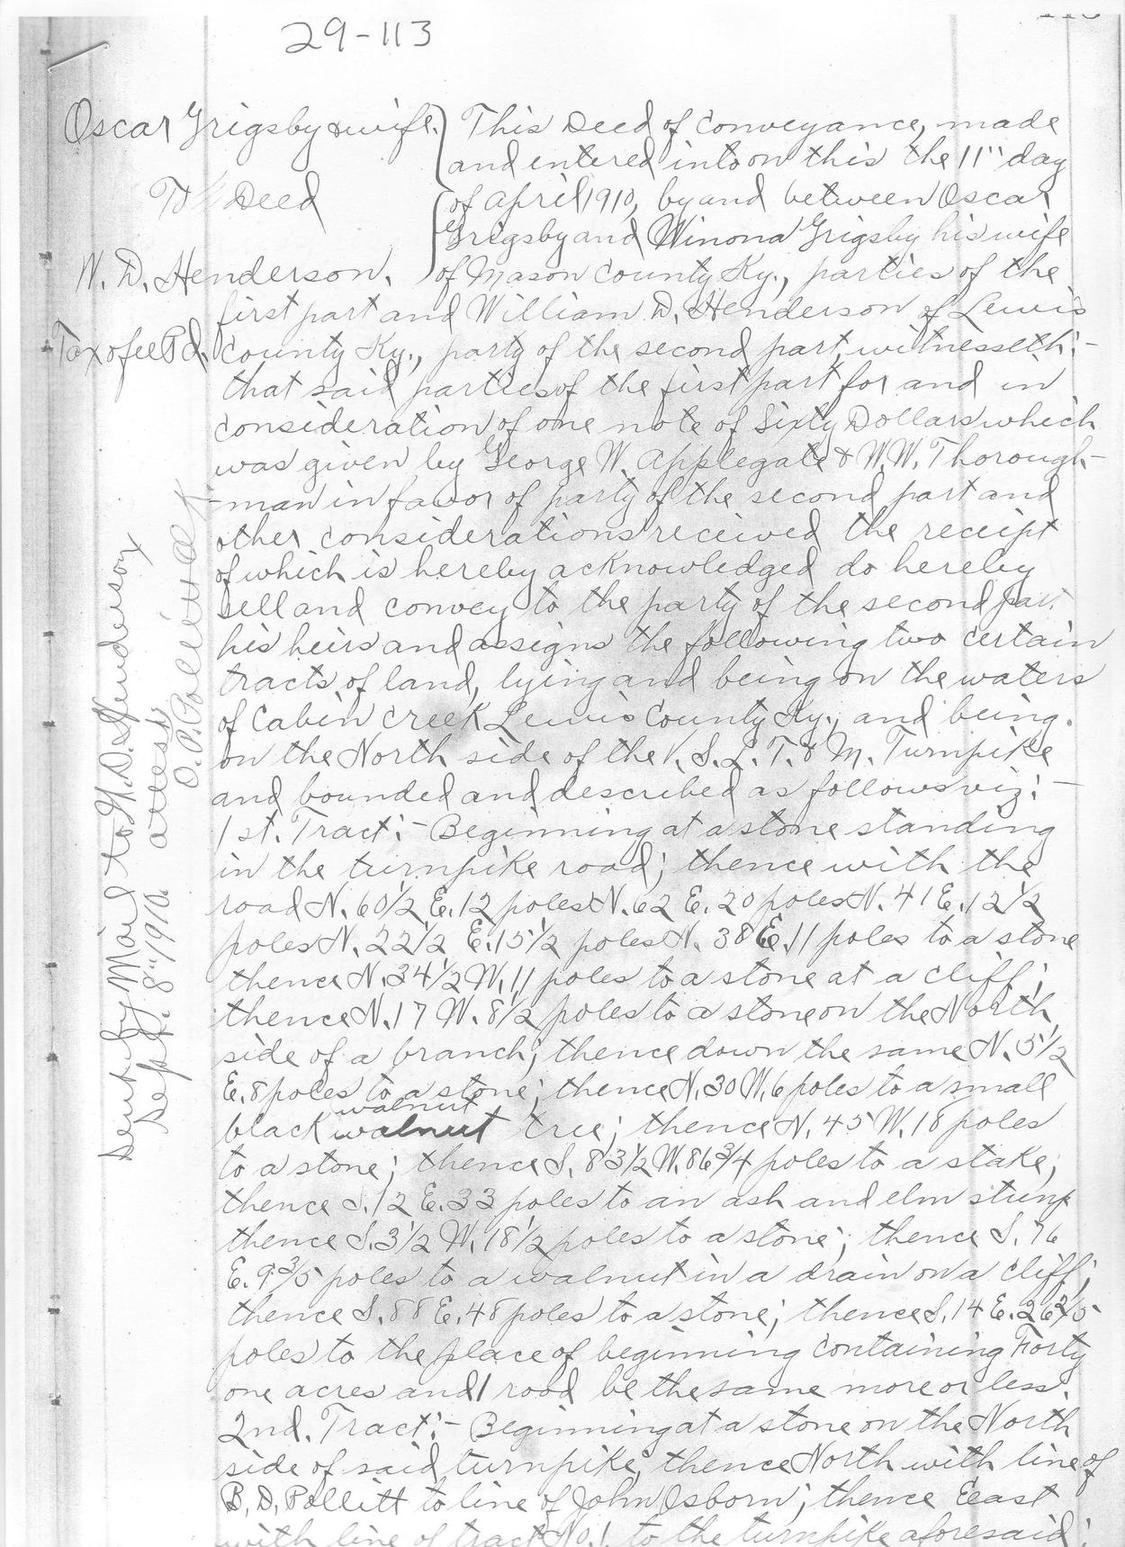 29-113
Oscar Grigsby & wife
To Deed
W. D. Henderson.
Tax & fee Pd.
This Deed of conveyance, made
and entered into on this the 11" day
of April 1910, by and between Oscar
Grigsby and Winona Grigsby his wife
of Mason County Ky., parties of the
first part and William D. Henderson of Lewis
County Ky., party of the second part, witnesseth:-
that said parties of the first part for and in
consideration of one note of Sixty Dollars which
was given by George W. Applegate & W.W. Thorough-
-man in favor of party of the second part and
other considerations received the receipt
of which is hereby acknowledged do hereby
sell and convey to the party of the second part
his heirs and assigns the following two certain
tracts of land, lying and being on the waters
of Cabin Creek Lewis County Ky., and being.
on the North side of the V. S. L. T. & M. Turnpike
and bounded and described as follows viz:-
1st. Tract:- Beginning at a stone standing
in the turnpike road; thence with the
road N. 60 1/2 E. 12 poles N. 62 E. 20 poles N. 41 E. 12 1/2
poles N. 22 1/2 E. 15 1/2 poles N. 38 E. 11 poles to a stone
thence N. 34 1/2 W. 11 poles to a stone at a cliff;
thence N. 17 W. 8 1/2 poles to a stone on the North
side of a branch; thence down the same N. 5 1/2
E. 8 poles to a stone; thence N. 30 W. 6 poles to a small
walnut
black walnut tree; thence N. 45 W. 18 poles
to a stone; thence S. 83 1/2 W. 86 3/4 poles to a stake;
thence S. 12 E. 33 poles to an ash and elm stump
thence S. 3 1/2 W. 18 1/2 poles to a stone; thence S. 76
E. 9 3/5 poles to a walnut in a drain on a cliff;
thence S. 88 E. 48 poles to a stone; thence S. 14 E. 26 2/5
poles to the place of beginning containing Forty
one acres and 1 rood be the same more or less.
2nd. Tract:- Beginning at a stone on the North
side of said turnpike; thence North with line of
B. D. Pollitt to line of John Osborn; thence Eeast
with line of tract No. 1 to the turnpike aforesaid;
Sent by Mail to W. D. Henderson
Sept. 8" 1910. attest
O. P. Pollitt Clk